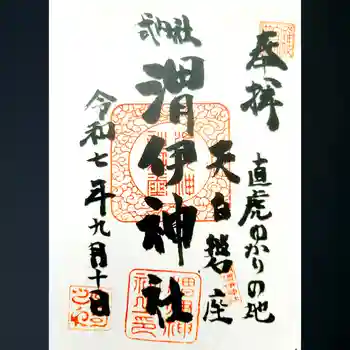 奉拝
直虎ゆかりの地
天白磐座
式内社
渭伊神社
令和七年九月十日